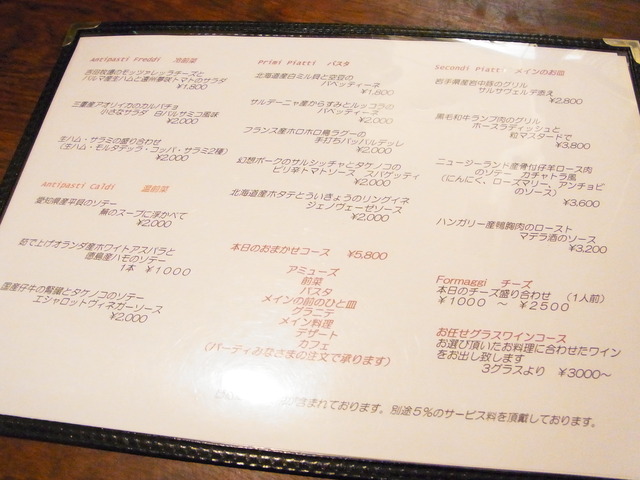 Antipasti Freddi 冷前菜
吉田牧場のモッツァレッラチーズと
パルマ産生ハムと遠州夢味トマトのサラダ
￥1,800
三重産アオリイカのカルパチョ
小さなサラダ 白バルサミコ風味
￥2,000
生ハム・サラミの盛り合わせ
（生ハム・モルタデッラ・コッパ・サラミ2種）
￥2,000
Antipasti Caldi 温前菜
愛知県産平貝のソテー
蕪のスープに浮かべて
￥2,000
茹で上げオランダ産ホワイトアスパラと
徳島産ハモのソテー
1本 ￥1000
国産仔牛の腎臓とタケノコのソテー
エシャロットヴィネガーソース
￥2,000
Primi Piatti パスタ
北海道産白ミル貝と空豆の
パベッティーネ
￥1,800
サルデーニャ産からすみとルッコラの
パベッティーネ
￥2,000
フランス産ホロホロ鶏ラグーの
手打ちパッパルデッレ
￥2,000
幻想ポークのサルシッチャとタケノコの
ピリ辛トマトソース スパゲッティ
￥2,000
北海道産ホタテとういきょうのリングイネ
ジェノヴェーゼソース
￥2,000
本日のおまかせコース ￥5,800
アミューズ
前菜
パスタ
メインの前のひと皿
グラニテ
メイン料理
デザート
カフェ
（パーティみなさまの注文で承ります）
Secondi Piatti メインのお皿
岩手県産岩中豚のグリル
サルサヴェルデ添え
￥2,800
黒毛和牛ランプ肉のグリル
ホースラディッシュと
粒マスタードで
￥3,800
ニュージーランド産骨付仔羊ロース肉
のソテー カチャトラ風
（にんにく、ローズマリー、アンチョビ
のソース）
￥3,600
ハンガリー産鴨胸肉のロースト
マデラ酒のソース
￥3,200
Formaggi チーズ
本日のチーズ盛り合わせ （1人前）
￥1000 ～ ￥2500
お任せグラスワインコース
お選び頂いたお料理に合わせたワイン
をお出し致します
3グラスより ￥3000～
含まれております。別途5％のサービス料を頂戴しております。